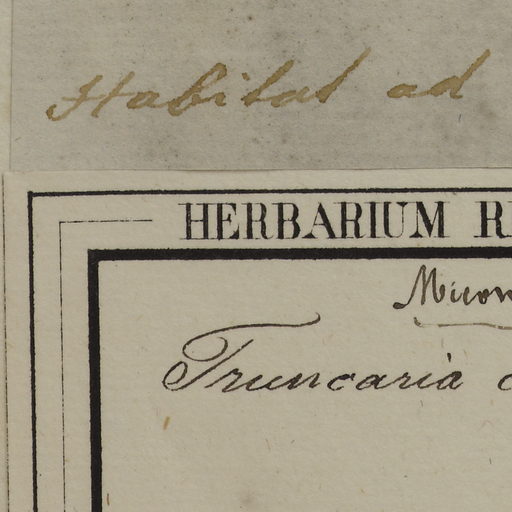 Habitat ad
HERBARIUM R
Micon
Truncaria c